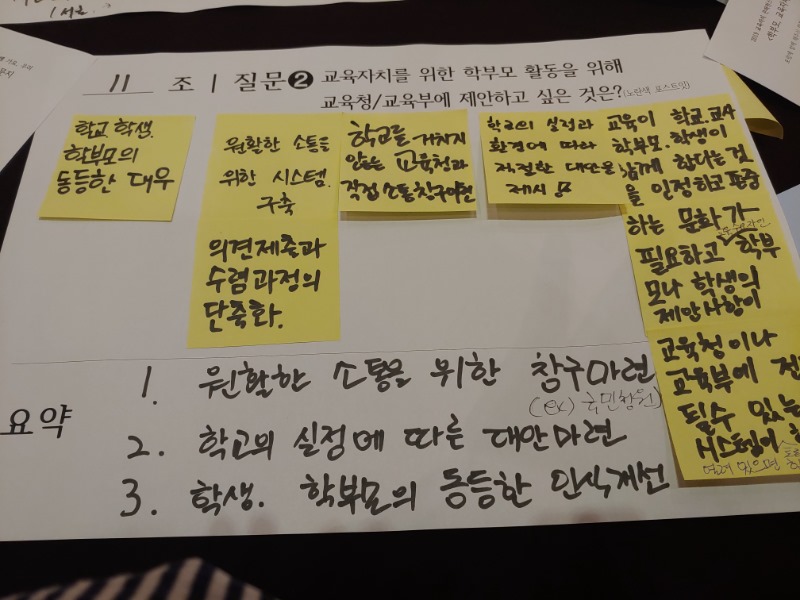 11 조 | 질문❷ 교육자치를 위한 학부모 활동을 위해
교육청/교육부에 제안하고 싶은 것은?(노란색 포스트잇)
학교 학생.
학부모의
동등한 대우
원활한 소통을
위한 시스템.
구축
의견제출과
수렴과정의
단축화.
학교를 거치지
않는 교육청과
직접 소통창구마련
학교의 실정과
환경에 따라
적절한 대안을
제시
교육이 학교.교사
학부모.학생이
함께 한다는 것
을 인정하고 존중
하는 문화가
필요하고 학부
모나 학생의
제안사항이
교육청이나
교육부에 전
될수 있는
시스템이
요약
1. 원활한 소통을 위한 창구마련
(ex) 국민청원)
2. 학교의 실정에 따른 대안마련
3. 학생. 학부모의 동등한 인식개선